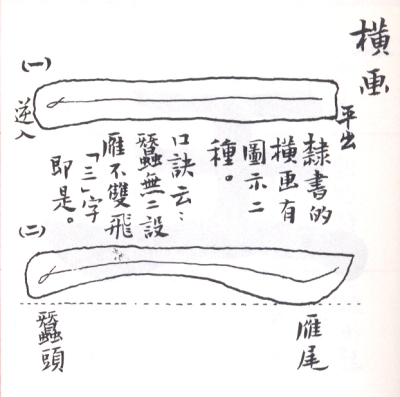 橫画
(一)
逆入
平出
隸書的
橫画有
圖示二
種。
口訣云：
蠶無二設
雁不雙飛
「三」字
即是。
(二)
蠶頭
雁尾